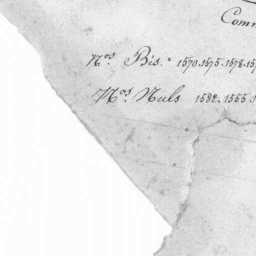 Com
Nos Bis. 1570. 1675. 1678. 15
Nos Nuls 1582. 1555. 1